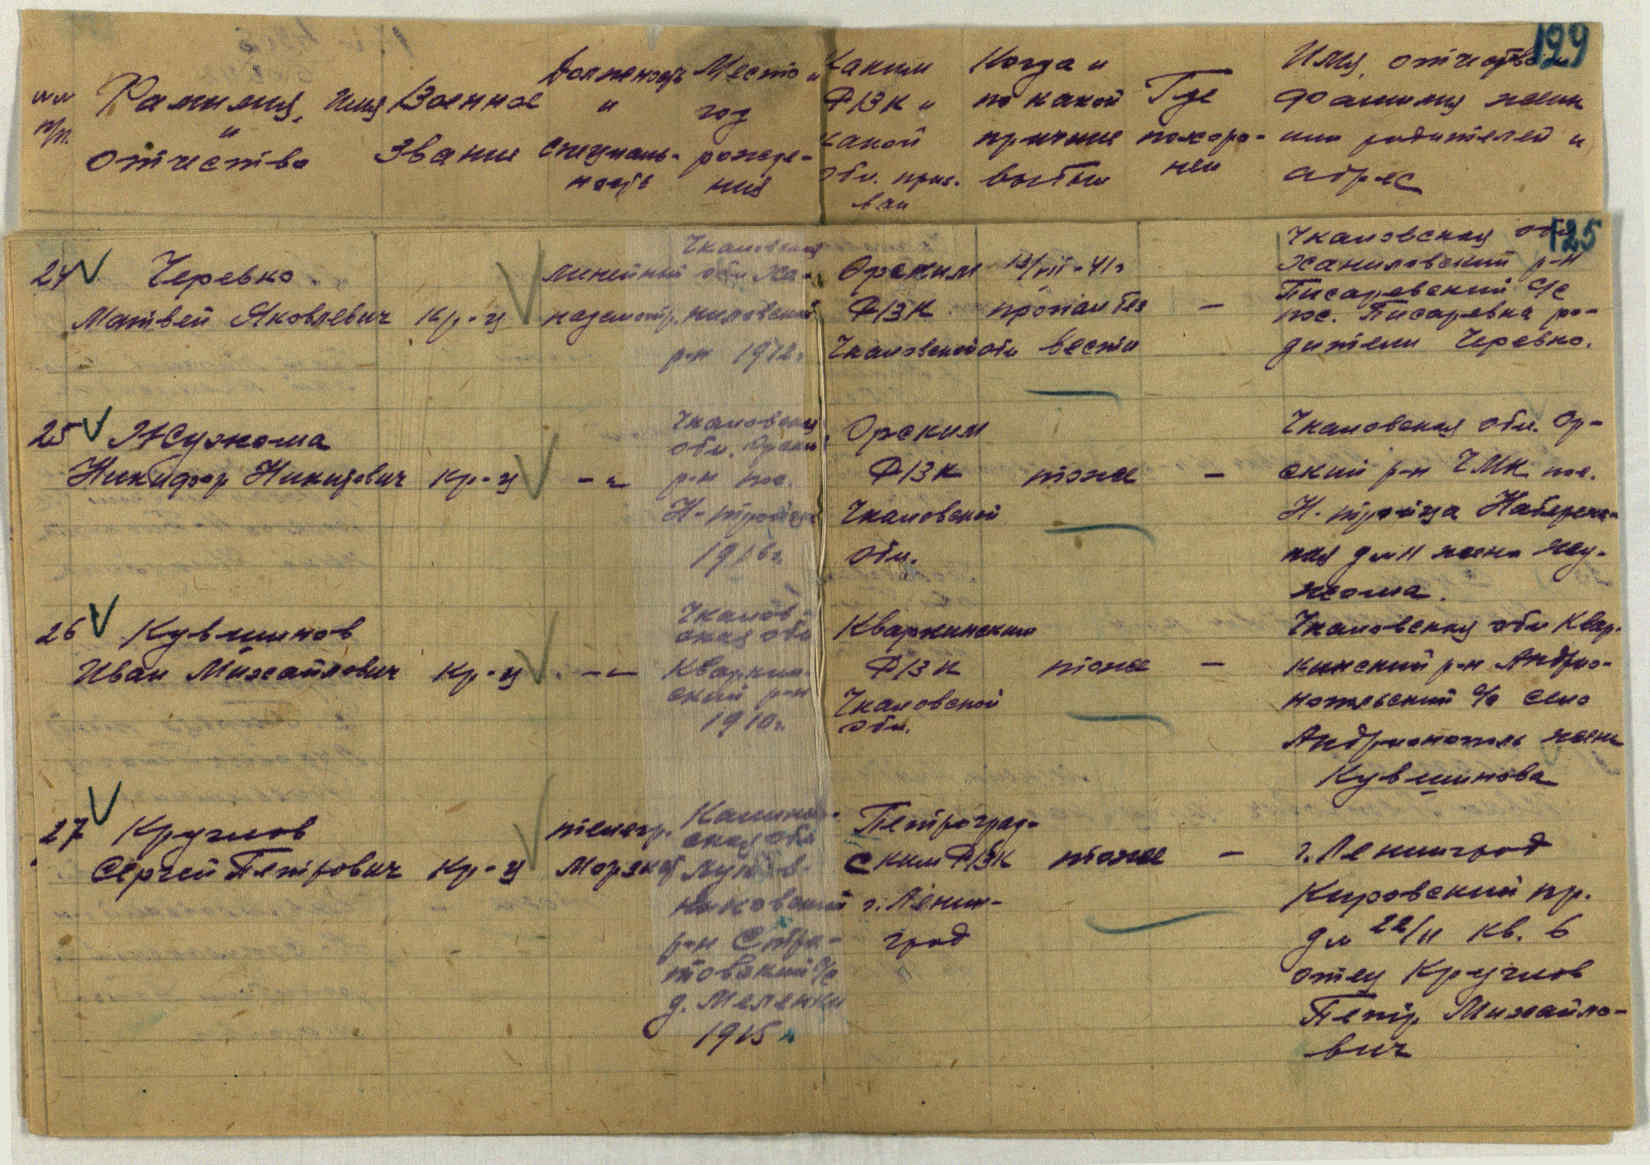 129
№№ п/п.
Фамилия, имя
и
отчество
Военное
звание
Должность
и
специаль-
ность
Место и
год
рожде-
ния
Каким
РВК и
какой
обл. приз-
ван
Когда и
по какой
причине
выбыл
Где
похоро-
нен
Имя, отчество и
фамилия жены
или родителей и
адрес
125
24
Черевко
Матвей Яковлевич
кр-ц
линейный
надсмотр.
Чкаловская
обл. Ха-
ниловский
р-н 1912г.
Орским
РВК
Чкаловской обл
13/VII-41г
пропал без
вести
—
Чкаловская обл
Халиловский р-н
Писаревский с/с
пос. Писаревка ро-
дители Черевко.
25
Жужома
Никифор Никитович
кр-ц
-"-
Чкаловская
обл. Орский
р-н пос.
Н-Тройца
1916г.
Орским
РВК
Чкаловской
обл.
тоже
—
Чкаловская обл. Ор-
ский р-н ЧМК пос.
Н-Тройца Набереж-
ная д №11 жена Жу-
жома.
26
Кувшинов
Иван Михайлович
кр-ц
-"-
Чкалов-
ская обл
Кваркин-
ский р-н
1910г.
Кваркинским
РВК
Чкаловской
обл.
тоже
—
Чкаловская обл Квар-
кинский р-н Андрио-
нопольский с/с село
Андрионополь жена
Кувшинова
27
Круглов
Сергей Петрович
кр-ц
телегр.
Морзист
Калинин-
ская обл
р-н
д. Меленки
1915г
Петроград-
ским РВК
г. Ленин-
град
тоже
—
г. Ленинград
Кировский пр.
д № 22/11 кв. 6
отец Круглов
Петр Михайло-
вич